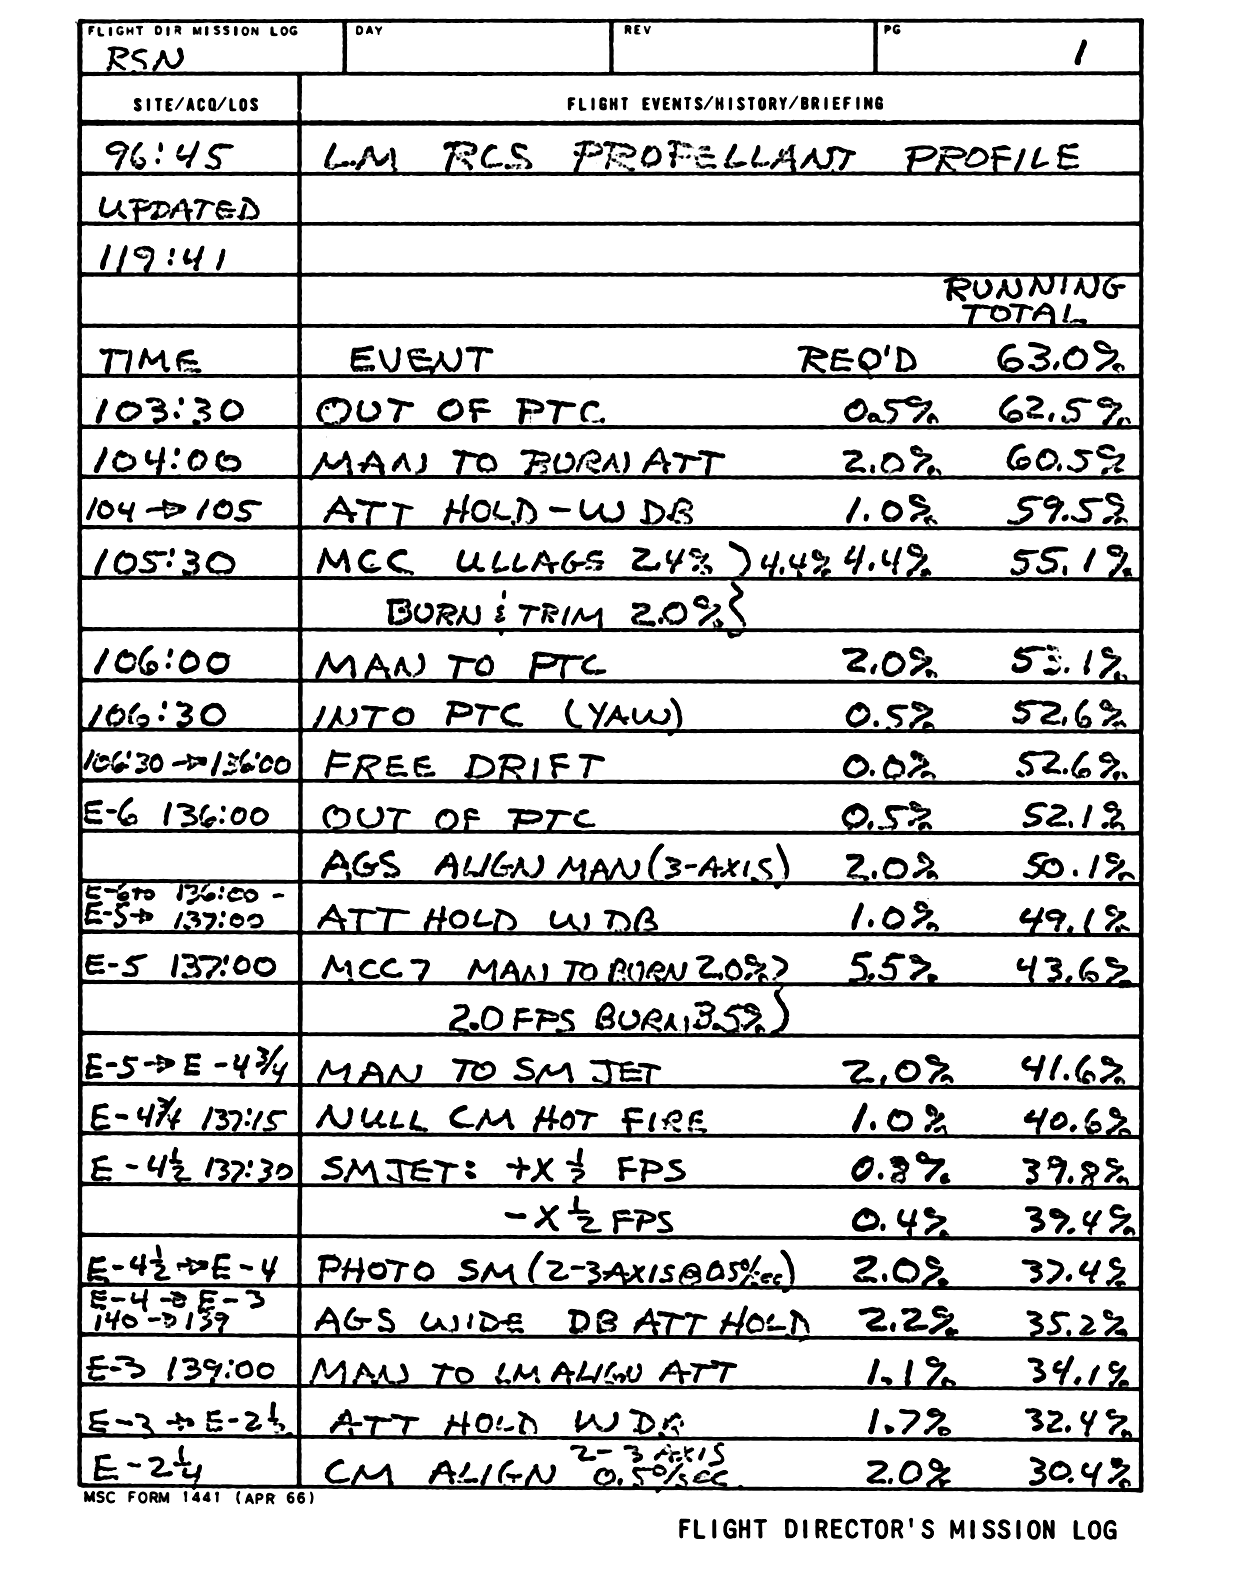 FLIGHT DIR MISSION LOG DAY REV PG
RSN 1
SITE/ACQ/LOS FLIGHT EVENTS/HISTORY/BRIEFING
96:45 LM RCS PROPELLANT PROFILE
UPDATED
119:41
RUNNING
TOTAL
TIME EVENT REQ'D 63.0%
103:30 OUT OF PTC 0.5% 62.5%
104:00 MAN TO BURN ATT 2.0% 60.5%
104→105 ATT HOLD-W DB 1.0% 59.5%
105:30 MCC ULLAGS 2.4% } 4.4% 4.4% 55.1%
BURN & TRIM 2.0%
106:00 MAN TO PTC 2.0% 53.1%
106:30 INTO PTC (YAW) 0.5% 52.6%
106:30→136:00 FREE DRIFT 0.0% 52.6%
E-6 136:00 OUT OF PTC 0.5% 52.1%
AGS ALIGN MAN (3-AXIS) 2.0% 50.1%
E-6 to 136:00 -
E-5→ 137:00 ATT HOLD W DB 1.0% 49.1%
E-5 137:00 MCC7 MAN TO BURN 2.0% } 5.5% 43.6%
2.0 FPS BURN 3.5%
E-5→E-4 3/4 MAN TO SM JET 2.0% 41.6%
E-4 3/4 137:15 NULL CM HOT FIRE 1.0% 40.6%
E-4 1/2 137:30 SM JET: +X 1/2 FPS 0.8% 39.8%
-X 1/2 FPS 0.4% 39.4%
E-4 1/2→E-4 PHOTO SM (2-3 AXIS @ 0.5°/sec) 2.0% 37.4%
E-4→E-3
140→139 AGS WIDE DB ATT HOLD 2.2% 35.2%
E-3 139:00 MAN TO LM ALIGN ATT 1.1% 34.1%
E-3→E-2 1/2 ATT HOLD W DB 1.7% 32.4%
E-2 1/4 CM ALIGN 2-3 AXIS 0.5°/SEC 2.0% 30.4%
MSC FORM 1441 (APR 66)
FLIGHT DIRECTOR'S MISSION LOG